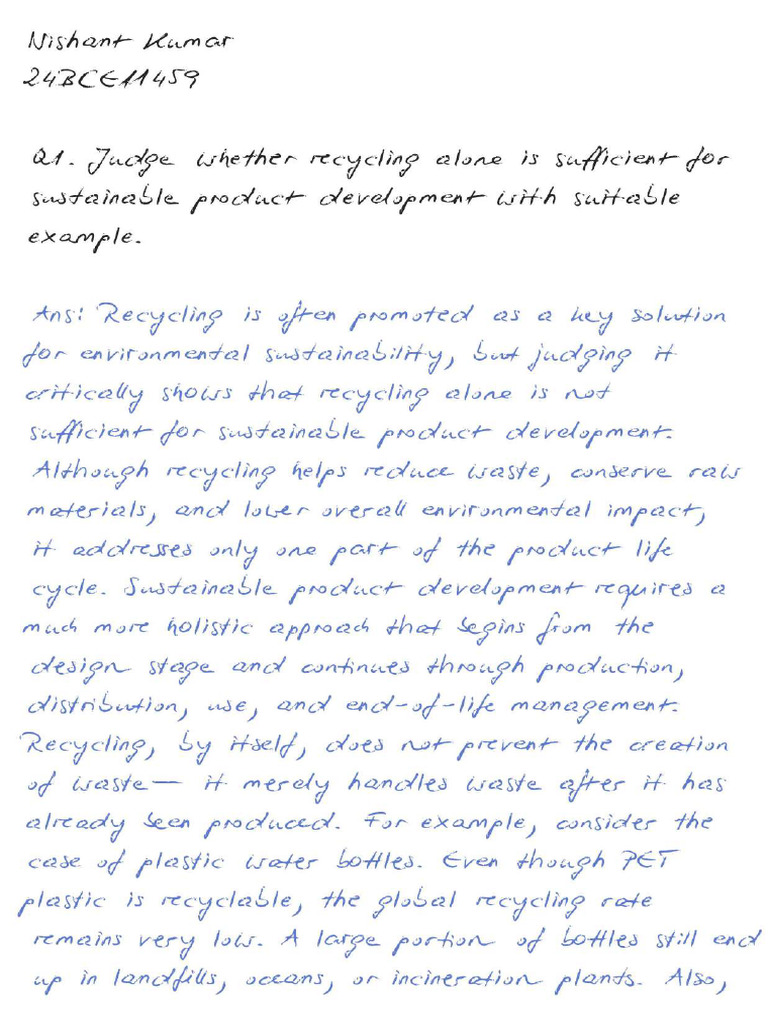 Nishant Kumar
24BCE11459
Q1. Judge whether recycling alone is sufficient for
sustainable product development with suitable
example.
Ans: Recycling is often promoted as a key solution
for environmental sustainability, but judging it
critically shows that recycling alone is not
sufficient for sustainable product development.
Although recycling helps reduce waste, conserve raw
materials, and lower overall environmental impact,
it addresses only one part of the product life
cycle. Sustainable product development requires a
much more holistic approach that begins from the
design stage and continues through production,
distribution, use, and end-of-life management.
Recycling, by itself, does not prevent the creation
of waste— it merely handles waste after it has
already been produced. For example, consider the
case of plastic water bottles. Even though PET
plastic is recyclable, the global recycling rate
remains very low. A large portion of bottles still end
up in landfills, oceans, or incineration plants. Also,